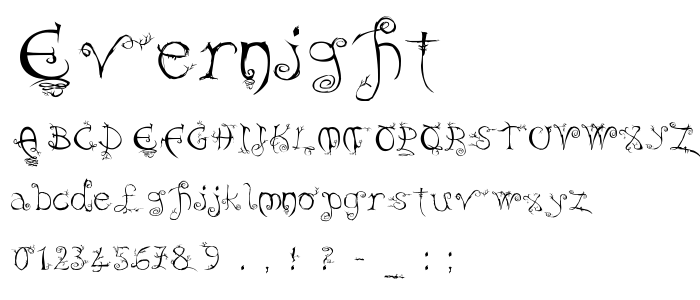 Evernight
ABCD EFGHIJKLMNOPQRSTUVWXYZ
abcdefghijklmnopqrstuvwxyz
0123456789 . , ! ? - _ : ;